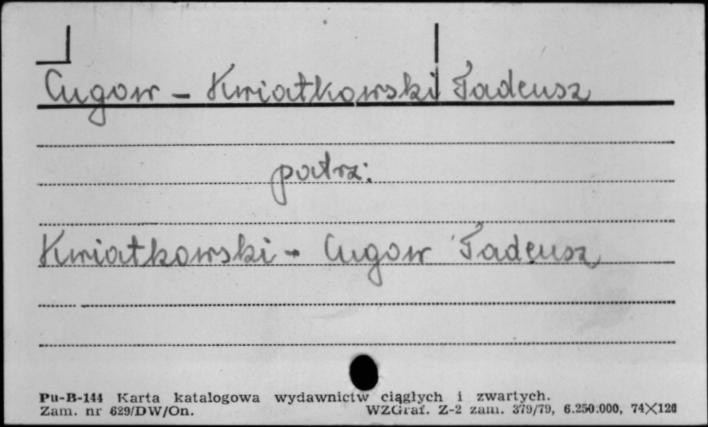 Cugow - Kwiatkowski Tadeusz
patrz:
Kwiatkowski - Cugow Tadeusz
Pu-B-144 Karta katalogowa wydawnictw ciągłych i zwartych.
Zam. nr 629/DW/On. WZGraf. Z-2 zam. 379/79, 6.250.000, 74×120